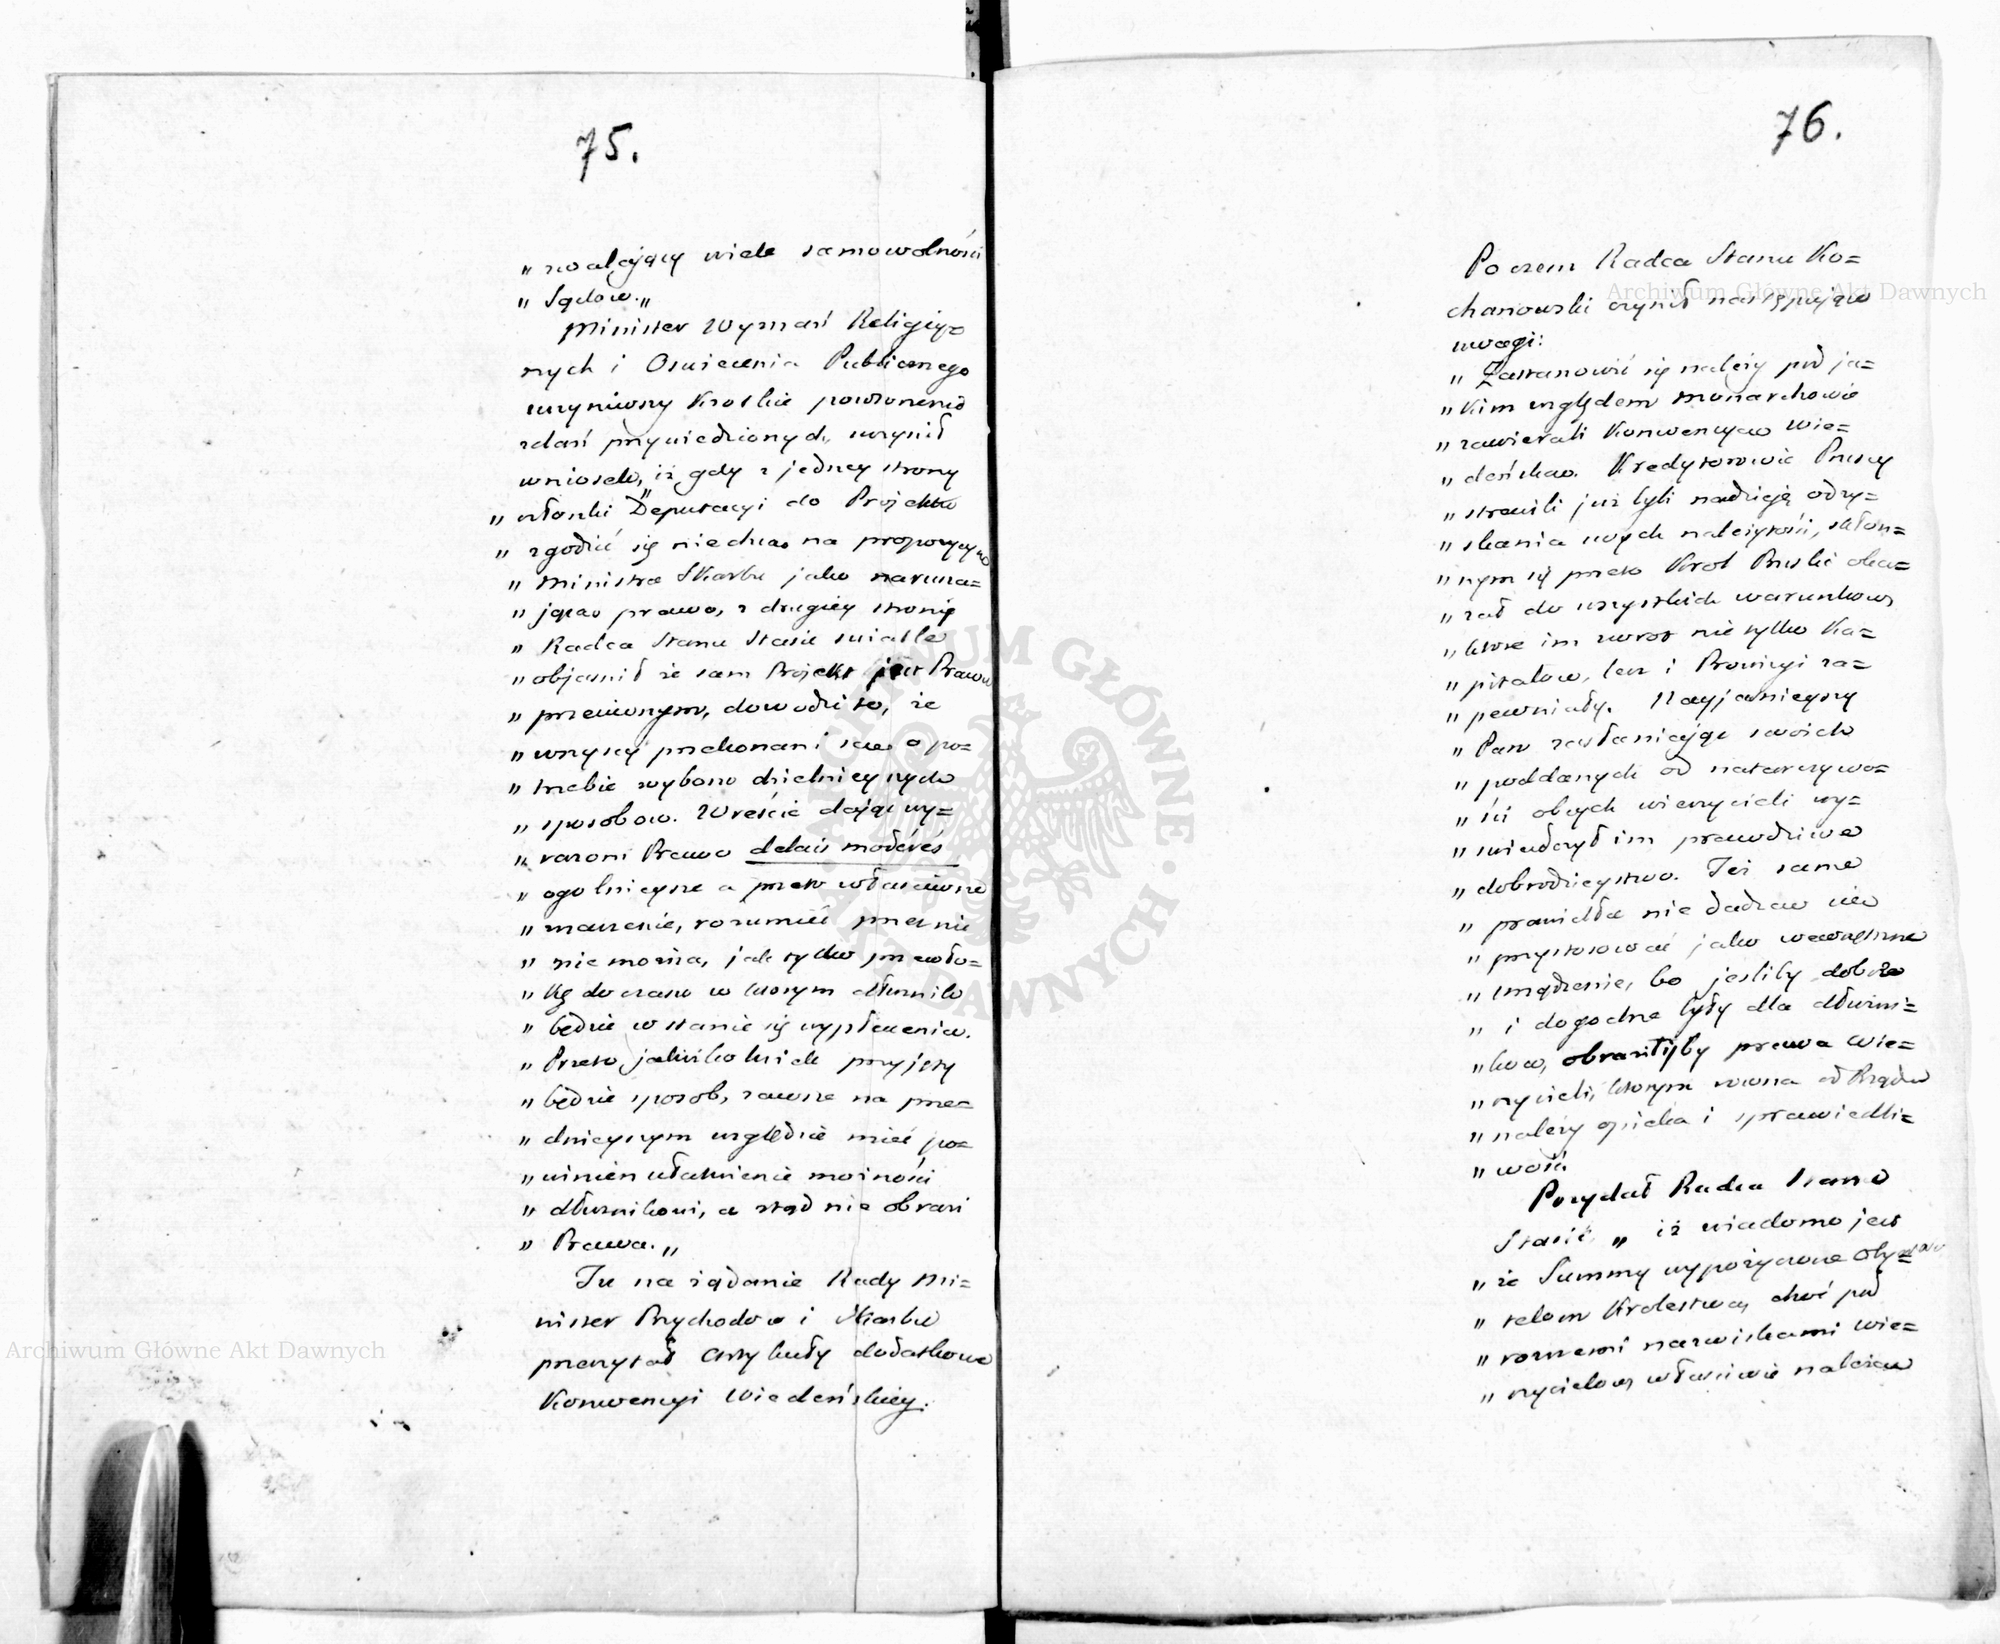 75.
„ zwalający wiele samowolności
„ Sądow.„
Minister Wyznań Religiy=
nych i Oswiecenia Publicznego
uczyniwszy krotkie powtorzenie
zdań przywiedzionych, uczynił
wniosek, iż „gdy z jedney strony
„ członki Deputacyi do Projektu
„ zgodzić się niechcą na propozycyą
„ Ministra Skarbu jako narusza=
„ jącą prawo, z drugiey stronie
„ Radca Stanu Stasic swiatle
„ objasnił że sam Projekt jest Prawu
„ przeciwnym, dowodzi to, że
„ wszyscy przekonani są o po=
„ trzebie wyboru dzielnieyszych
„ sposobow. Wreście dając wy=
„ razom Prawa delais modérés
„ ogolnieysze a przeto właściwsze
„ znaczenie, rozumieć pewnie
„ nie można, jak tylko przewło=
„ kę do czasu w ktorym dłużnik
„ będzie w stanie się wypłacenia.
„ Przeto jakikolwiek przyjęty
„ będzie sposob, zawsze na prze=
„ dnieyszym względzie mieć po=
„ winien ułatwienie możności
„ dłużnikowi, a ztąd nie obrazi
„ Prawa.„
Tu na żądanie Rady Mi=
nister Przychodow i Skarbu
przeczytał Artykuły dodatkowe
Konwencyi Wiedeńskiey.
76.
Poczem Radca Stanu Ko=
chanowski czynił następujące
uwagi:
„ Zastanowić się należy pod ja=
„ kim względem Monarchowie
„ zawierali Konwencyą Wie=
„ deńską. Kredytorowie Pruscy
„ stracili już byli nadzieję odzy=
„ skania swych należytości, skłon=
„ nym się przeto Krol Pruski oka=
„ zał do wszystkich warunkow,
„ ktore im zwrot nie tylko Ka=
„ pitałow, lecz i Prowizyi za=
„ pewniały. Nayjaśnieyszy
„ Pan zasłaniając swoich
„ poddanych od natarczywo=
„ ści obcych wierzycieli wy=
„ swiadczył im prawdziwe
„ dobrodzieystwo. Też same
„ prawidła nie dadzą się
„ przystosować jako wewnętrzne
„ urządzenie, bo jeśliby dobre
„ i dogodne były dla dłużni=
„ kow, obraziłyby prawa Wie=
„ rzycieli, ktorym rowna od Rządu
„ należy opieka i sprawiedli=
„ wość.
Przydał Radca Stanu
Stasic, „ iż wiadomo jest
„ że Summy wypożyczone Obywa=
„ telom Krolestwa, choć pod
„ roznemi nazwiskami Wie=
„ rzycielow, właściwie należą
Archiwum Główne Akt Dawnych
Archiwum Główne Akt Dawnych
ARCHIWUM GŁÓWNE AKT DAWNYCH